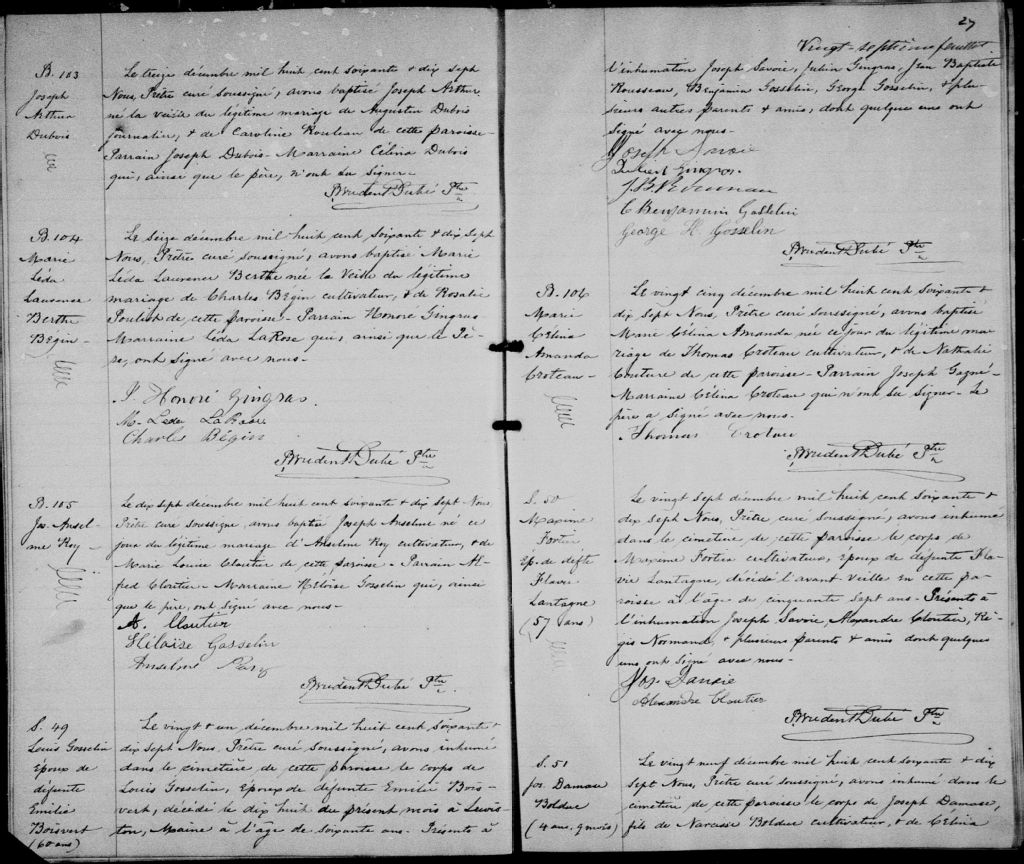 B. 103
Joseph
Arthur
Dubois
Le treize décembre mil huit cent soixante & dix sept
Nous, Prêtre curé soussigné, avons baptisé Joseph Arthur,
né la veille du légitime mariage de Augustin Dubois
journalier, & de Caroline Rouleau de cette paroisse-
Parrain Joseph Dubois- Marraine Célina Dubois
qui, ainsi que le père, n'ont su signer-
Prudent Dubé Ptre
B. 104
Marie
Léda
Laurence
Berthe
Bégin-
Le seize décembre mil huit cent soixante & dix sept
Nous, Prêtre curé soussigné, avons baptisé Marie
Léda Laurence Berthe née la veille du légitime
mariage de Charles Bégin cultivateur, & de Rosalie
Pouliot de cette paroisse- Parrain Honoré Gingras
Marraine Léda LaRose qui, ainsi que le Pè-
re, ont signé avec nous-
J. Honoré Gingras.
M. Leda LaRose
Charles Bégin
Prudent Dubé Ptre
B. 105
Jos. Ansel-
me Roy-
Le dix sept décembre mil huit cent soixante & dix sept- Nous,
Prêtre curé soussigné, avons baptisé Joseph Anselme né ce
jour du légitime mariage d'Anselme Roy cultivateur, & de
Marie Louise Cloutier de cette paroisse- Parrain Al-
fred Cloutier- Marraine Héloïse Gosselin qui, ainsi
que le père, ont signé avec nous-
A. Cloutier
Héloise Gosselin
Anselme Roy
Prudent Dubé Ptre.
S. 49
Louis Gosselin
Epoux de
défunte
Emilie
Boisvert
(60 ans)
Le vingt & un décembre mil huit cent soixante &
dix sept Nous, Prêtre curé soussigné, avons inhumé
dans le cimetière de cette paroisse le corps de
Louis Gosselin, époux de défunte Emilie Bois-
vert, décédé le dix huit du présent mois à Lewis-
ton, Maine à l'âge de soixante ans- Présents à
27
Vingt-septième feuillet
l'inhumation Joseph Savoie, Julien Gingras, Jean Baptiste
Rousseau, Benjamin Gosselin, George Gosselin, & plu-
sieurs autres parents & amis, dont quelques uns ont
signé avec nous-
Joseph Savoie
Julien Gingras.
J.B. Rousseau
Benjamin Gosselin
George H. Gosselin
Prudent Dubé Ptre
B. 106
Marie
Célina
Amanda
Croteau-
Le vingt cinq décembre mil huit cent soixante &
dix sept Nous, Prêtre curé soussigné, avons baptisé
Marie Célina Amanda née ce jour du légitime ma-
riage de Thomas Croteau cultivateur, & de Nathalie
Couture de cette paroisse- Parrain Joseph Gagné-
Marraine Célina Croteau qui n'ont su signer- Le
père a signé avec nous.
Thomas Croteau
Prudent Dubé Ptre
S. 50
Maxime
Fortier
Ep. de défte
Flavie
Lantagne
(57 ans)
Le vingt sept décembre mil huit cent soixante &
dix sept Nous, Prêtre curé soussigné, avons inhumé
dans le cimetière de cette paroisse le corps de
Maxime Fortier cultivateur, époux de défunte Fla-
vie Lantagne, décédé l'avant veille en cette pa-
roisse à l'âge de cinquante sept ans- Présents à
l'inhumation Joseph Savoie, Alexandre Cloutier, Ré-
gis Normand, & plusieurs parents & amis dont quelques
uns ont signé avec nous-
Jos. Savoie
Alexandre Cloutier
Prudent Dubé Ptre
S. 51
Jos. Damase
Bolduc
(4 ans, 9 mois)
Le vingt neuf décembre mil huit cent soixante & dix
sept Nous, Prêtre curé soussigné, avons inhumé dans le
cimetière de cette paroisse le corps de Joseph Damase,
fils de Narcisse Bolduc cultivateur, & de Célina